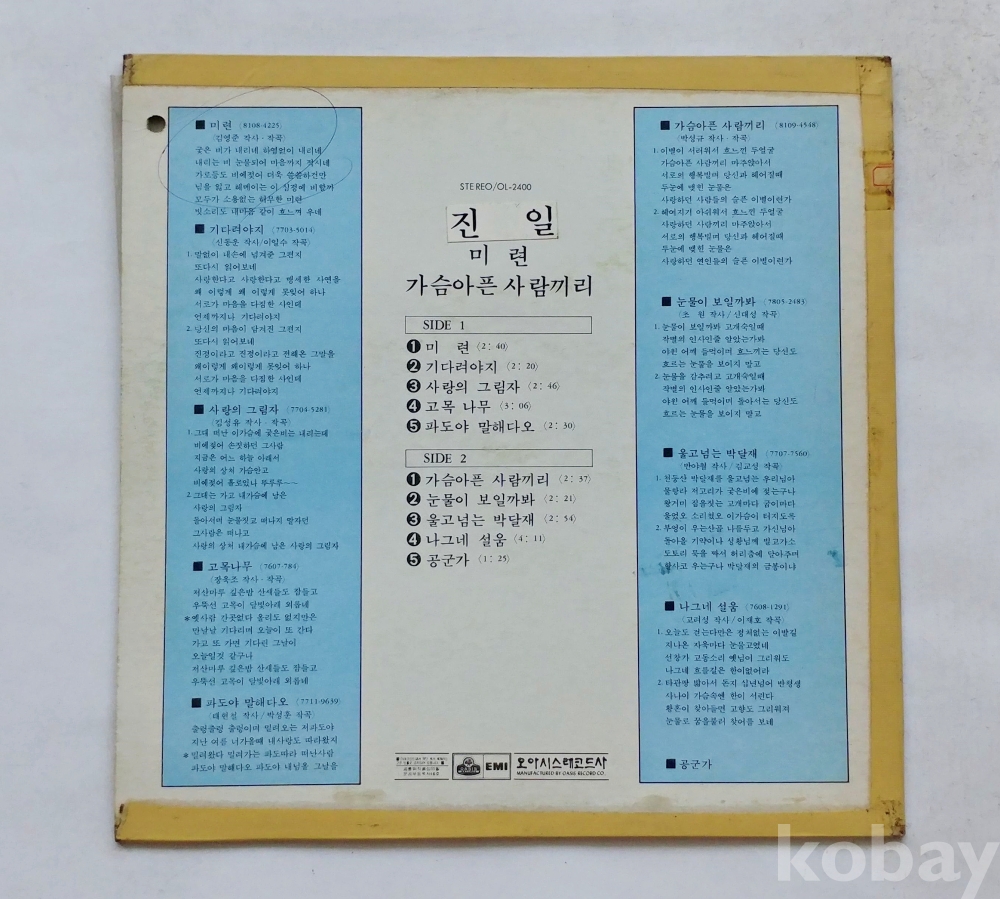 ■ 미련 (8108-4225)
(김영준 작사·작곡)
궂은 비가 내리네 하염없이 내리네
내리는 비 눈물되어 마음까지 젖시네
가로등도 비에젖어 더욱 쓸쓸하건만
님을 잃고 헤메이는 이 심정에 비할까
모두가 소용없는 허무한 미련
빗소리도 내마음 같이 흐느껴 우네
■ 기다려야지 (7703-5014)
(신동운 작사/이일수 작곡)
1. 말없이 내손에 넘겨준 그편지
또다시 읽어보네
사랑한다고 사랑한다고 맹세한 사연을
왜 이렇게 왜 이렇게 못잊어 하나
서로가 마음을 다짐한 사인데
언제까지나 기다려야지
2. 당신의 마음이 담겨진 그편지
또다시 읽어보네
진정이라고 진정이라고 전해온 그말을
왜이렇게 왜이렇게 못잊어 하나
서로가 마음을 다짐한 사인데
언제까지나 기다려야지
■ 사랑의 그림자 (7704-5281)
(김성유 작사·작곡)
1. 그대 떠난 이가슴에 궂은비는 내리는데
비에젖어 손짓하던 그사람
지금은 어느 하늘 아래서
사랑의 상처 가슴안고
비에젖어 홀로있나 뚜루루~~
2. 그대는 가고 내가슴에 남은
사랑의 그림자
돌아서며 눈물짓고 떠나지 말자던
그사람은 떠나고
사랑의 상처 내가슴에 남은 사랑의 그림자
■ 고목나무 (7607-784)
(장욱조 작사·작곡)
저산마루 깊은밤 산새들도 잠들고
우뚝선 고목이 달빛아래 외롭네
*옛사람 간곳없다 올리도 없지만은
만날날 기다리며 오늘이 또 간다
가고 또 가면 기다린 그날이
오늘일것 같구나
저산마루 깊은밤 산새들도 잠들고
우뚝선 고목이 달빛아래 외롭네
■ 파도야 말해다오 (7711-9639)
(태현실 작사/박성훈 작곡)
출렁출렁 출렁이며 밀려오는 저파도야
지난 여름 너가올때 내사랑도 따라왔지
*밀려왔다 밀려가는 파도따라 떠난사람
파도야 말해다오 파도야 내님을 그날을
STEREO/OL-2400
진 일
미 련
가슴아픈 사람끼리
SIDE 1
❶ 미 련 (2:40)
❷ 기다려야지 (2:20)
❸ 사랑의 그림자 (2:46)
❹ 고목 나무 (3:06)
❺ 파도야 말해다오 (2:30)
SIDE 2
❶ 가슴아픈 사람끼리 (2:37)
❷ 눈물이 보일까봐 (2:21)
❸ 울고넘는 박달재 (2:54)
❹ 나그네 설움 (4:11)
❺ 공군가 (1:25)
EMI
오아시스레코드사
MANUFACTURED BY OASIS RECORD CO.
■ 가슴아픈 사람끼리 (8109-4548)
(박성규 작사·작곡)
1. 이별이 서러워서 흐느낀 두얼굴
가슴아픈 사람끼리 마주앉아서
서로의 행복빌며 당신과 헤어질때
두눈에 맺힌 눈물은
사랑하던 사람들의 슬픈 이별이련가
2. 헤여지기 아쉬워서 흐느낀 두얼굴
사랑하던 사람끼리 마주앉아서
서로의 행복빌며 당신과 헤어질때
두눈에 맺힌 눈물은
사랑하던 연인들의 슬픈 이별이런가
■ 눈물이 보일까봐 (7805-2483)
(초 원 작사/신대성 작곡)
1. 눈물이 보일까봐 고개숙일때
작별의 인사인줄 알았는가봐
야윈 어깨 들먹이며 흐느끼는 당신도
흐르는 눈물을 보이지 말고
2. 눈물을 감추려고 고개숙일때
작별의 인사인줄 알았는가봐
야윈 어깨 들먹이며 돌아서는 당신도
흐르는 눈물을 보이지 말고
■ 울고넘는 박달재 (7707-7560)
(반야월 작사/김교성 작곡)
1. 천둥산 박달재를 울고넘는 우리님아
물항라 저고리가 궂은비에 젖는구나
왕거미 집을짓는 고개마다 굽이마다
울었오 소리쳤오 이가슴이 터지도록
2. 부엉이 우는산골 나를두고 가신님아
돌아올 기약이나 성황님께 빌고가소
도토리 묵을 싸서 허리춤에 달아주며
한사코 우는구나 박달재의 금봉이냐
■ 나그네 설움 (7608-1291)
(고려성 작사/이재호 작곡)
1. 오늘도 걷는다만은 정처없는 이발길
지나온 자욱마다 눈물고였네
선창가 고동소리 옛님이 그리워도
나그네 흐를길은 한이없어라
2. 타관땅 밟아서 돈지 십년넘어 반평생
사나이 가슴속엔 한이 서린다
황혼이 찾아들면 고향도 그리워져
눈물로 꿈을불러 찾어를 보네
■ 공군가
kobay